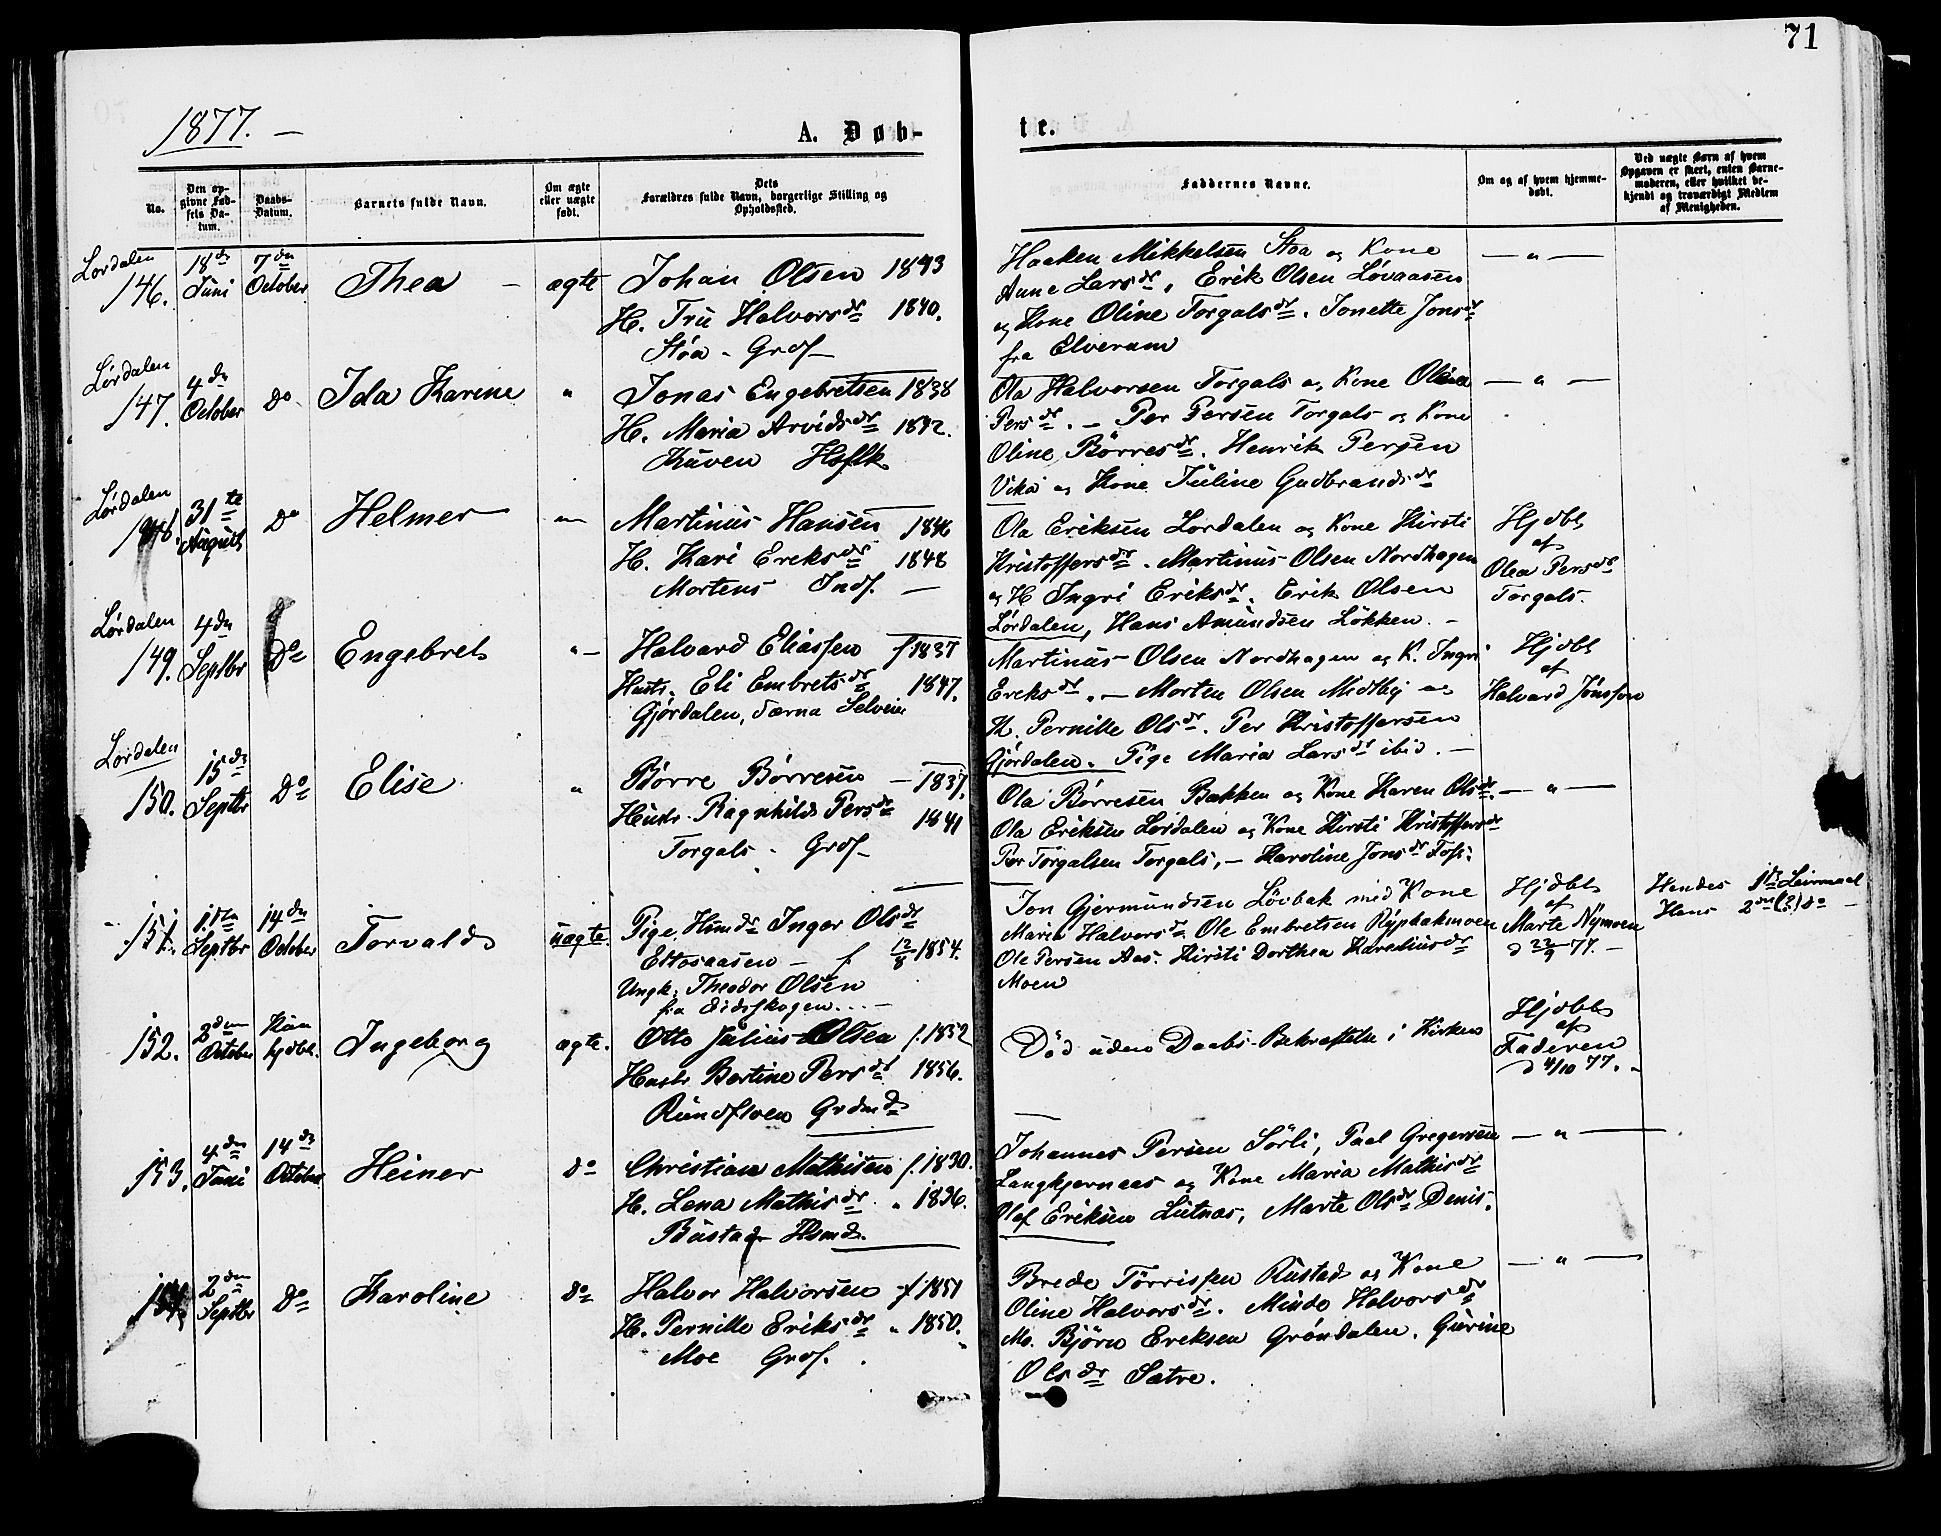 71
1877. —
A. Døbte.
No.
Den opgivne Fødsels Datum.
Daabs-Datum.
Barnets fulde Navn.
Om ægte eller uægte født.
Dets Forældres fulde Navn, borgerlige Stilling og Opholdssted.
Faddernes Navne.
Om og af hvem hjemmedøbt.
Ved uægte Børn af hvem Opgaven er skeet, enten Barnemoderen, eller hvilket bekjendt og troværdigt Medlem af Menigheden.
Lørdalen
146. 18de Juni 7de October Thea — ægte
Johan Olsen 1843
H. Tru Halvorsdr 1840.
Støa - Grdf
Haaken Mikkelsen Støa og Kone
Anne Larsdr, Erik Olsen Løvaasen
og Kone Oline Torgalsdr. Jonette Jonsdr
fra Elverum
— " —
Lørdalen
147. 4de October do Ida Karine "
Jonas Engebretsen 1838
H. Maria Arvidsdr 1842.
Kuven Hsflk
Ola Halvorsen Torgals og Kone Olea
Persdr. — Per Persen Torgals og Kone
Oline Børresdr. Henrik Persen
Vika og Kone Juline Gudbrandsdr
— " —
Lørdalen
148. 31te August do Helmer "
Martinus Hansen 1846
H. Kari Ereksdr 1848
Mortens Indf. —
Ola Eriksen Lørdalen og Kone Kirsti
Kristoffersdr. Martinus Olsen Nordhagen
og H Ingri Eriksdr. Erik Olsen
Lørdalen, Hans Amundsen Løkken. —
Hjdbt
af
Olea Persdr
Torgals.
Lørdalen
149. 4de Septbr Do Engebret "
Halvard Eliassen f 1837
Hustr. Eli Embretsdr 1847.
Gjørdalen, Tærna Selveier
Martinus Olsen Nordhagen og K. Ingri
Ereksdr. — Morten Olsen Midtby og
K. Pernille Olsdr. Per Kristoffersen
Gjørdalen. Pige Maria Larsdr ibid. —
Hjdbt
af
Halvard Jonsson
Lørdalen
150. 15de Septbr Do Elise "
Børre Børresen — 1837.
Hustr. Ragnhild Persdr 1841
Torgals - Grdf
Ola Børresen Bakken og Kone Karen Olsdr.
Ola Eriksen Lørdalen og Kone Kirsti Kristoffersdr
Per Torgalsen Torgals, — Karoline Jonsdr Foss.
— " —
151. 1ste Septbr 14de October Torvald uægte.
Pige, Hsmdr Inger Olsdr
Eltosaasen — f 12/8 1854.
Ungk. Theodor Olsen
fra Eidsskogen. . . —
Jon Gjermundsen Løvbak med Kone
Maria Halvorsdr. Ole Embretsen Rypbakmoen
Ole Persen Aas. Kirsti Dorthea Kareliusdr
Moen
Hjdbt
af
Marte Nymoen
d 22/9 77. —
Hendes 1ste Leiermaal
Hans 2det (?) do —
152. 2den October Kun hjdbt. Ingeborg ægte.
Otto Julius Olsen f. 1852
Hustr. Bertine Persdr 1856.
Rundfloen Grdmd
Død uden Daabs-Bekræftelse i Kirken
Hjdbt
af
Faderen
d 4/10 77. —
153. 4de Juni 14de October Heiner do
Christian Mathisen f. 1830.
H. Lena Mathisdr " 1836.
Bustad Hsmd.
Johannes Persen Sørli, Paal Gregersen
Langkjernaes og Kone Maria Mathisdr
Olaf Eriksen Lutnæs, Marte Olsdr Denis.
— " —
154. 2den Septbr Do Karoline do
Halvor Halvorsen f 1851
H. Pernille Eriksdr " 1850.
Moe Grdf.
Brede Tørrissen Rustad og Kone
Oline Halvorsdr. Mindo Halvorsdr
Mo. Bjørn Ereksen Grøndalen. Gurine
Olsdr Sætre.
— " —